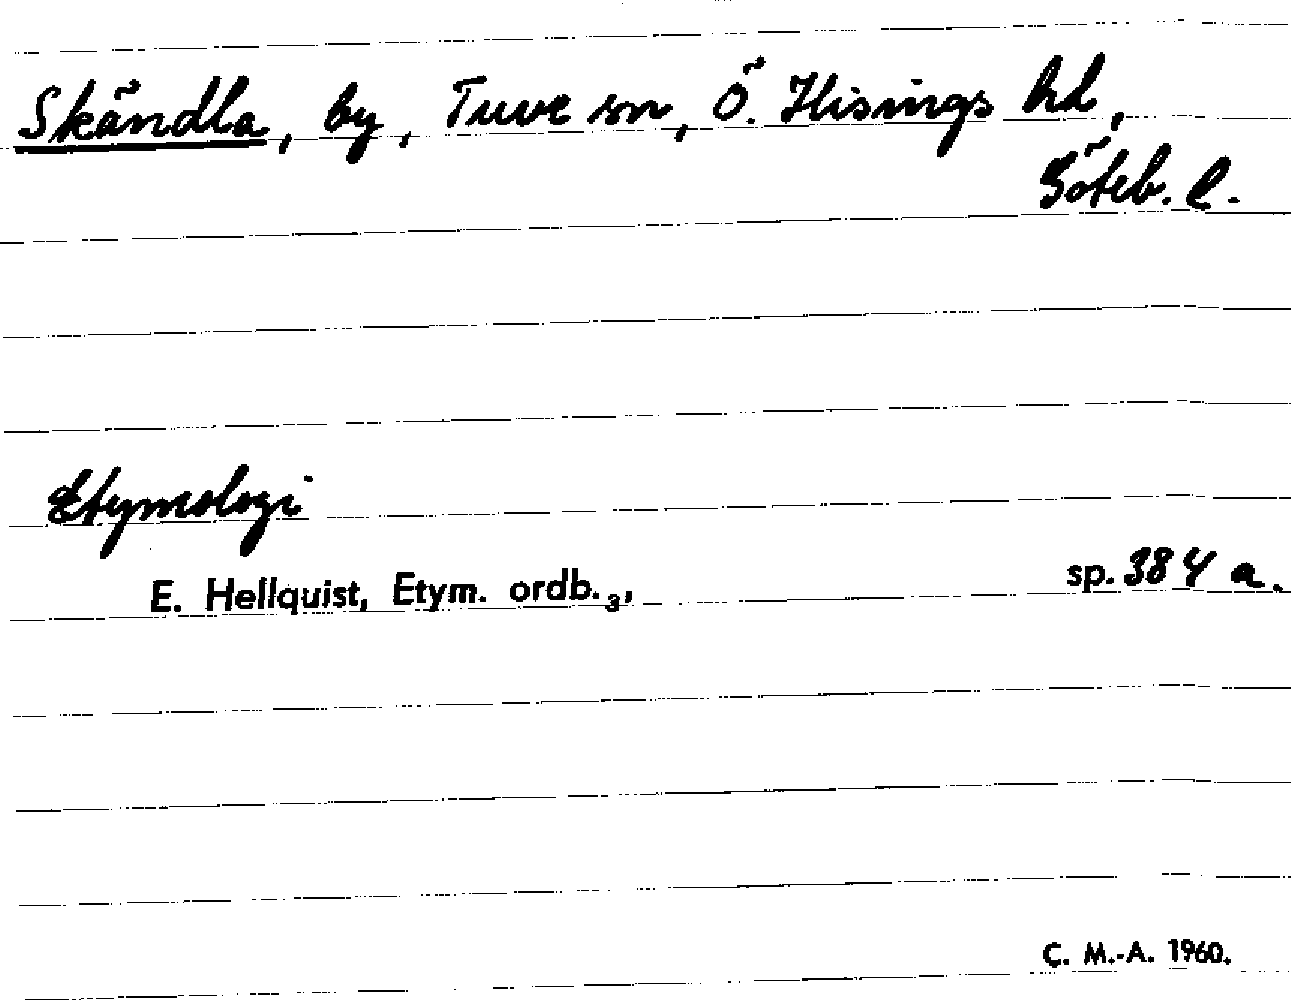 Skändla, by, Tuve sn, Ö. Hisings hd,
Göteb. l.
Etymologi
E. Hellquist, Etym. ordb.₃, sp. 384 a.
C. M.-A. 1960.